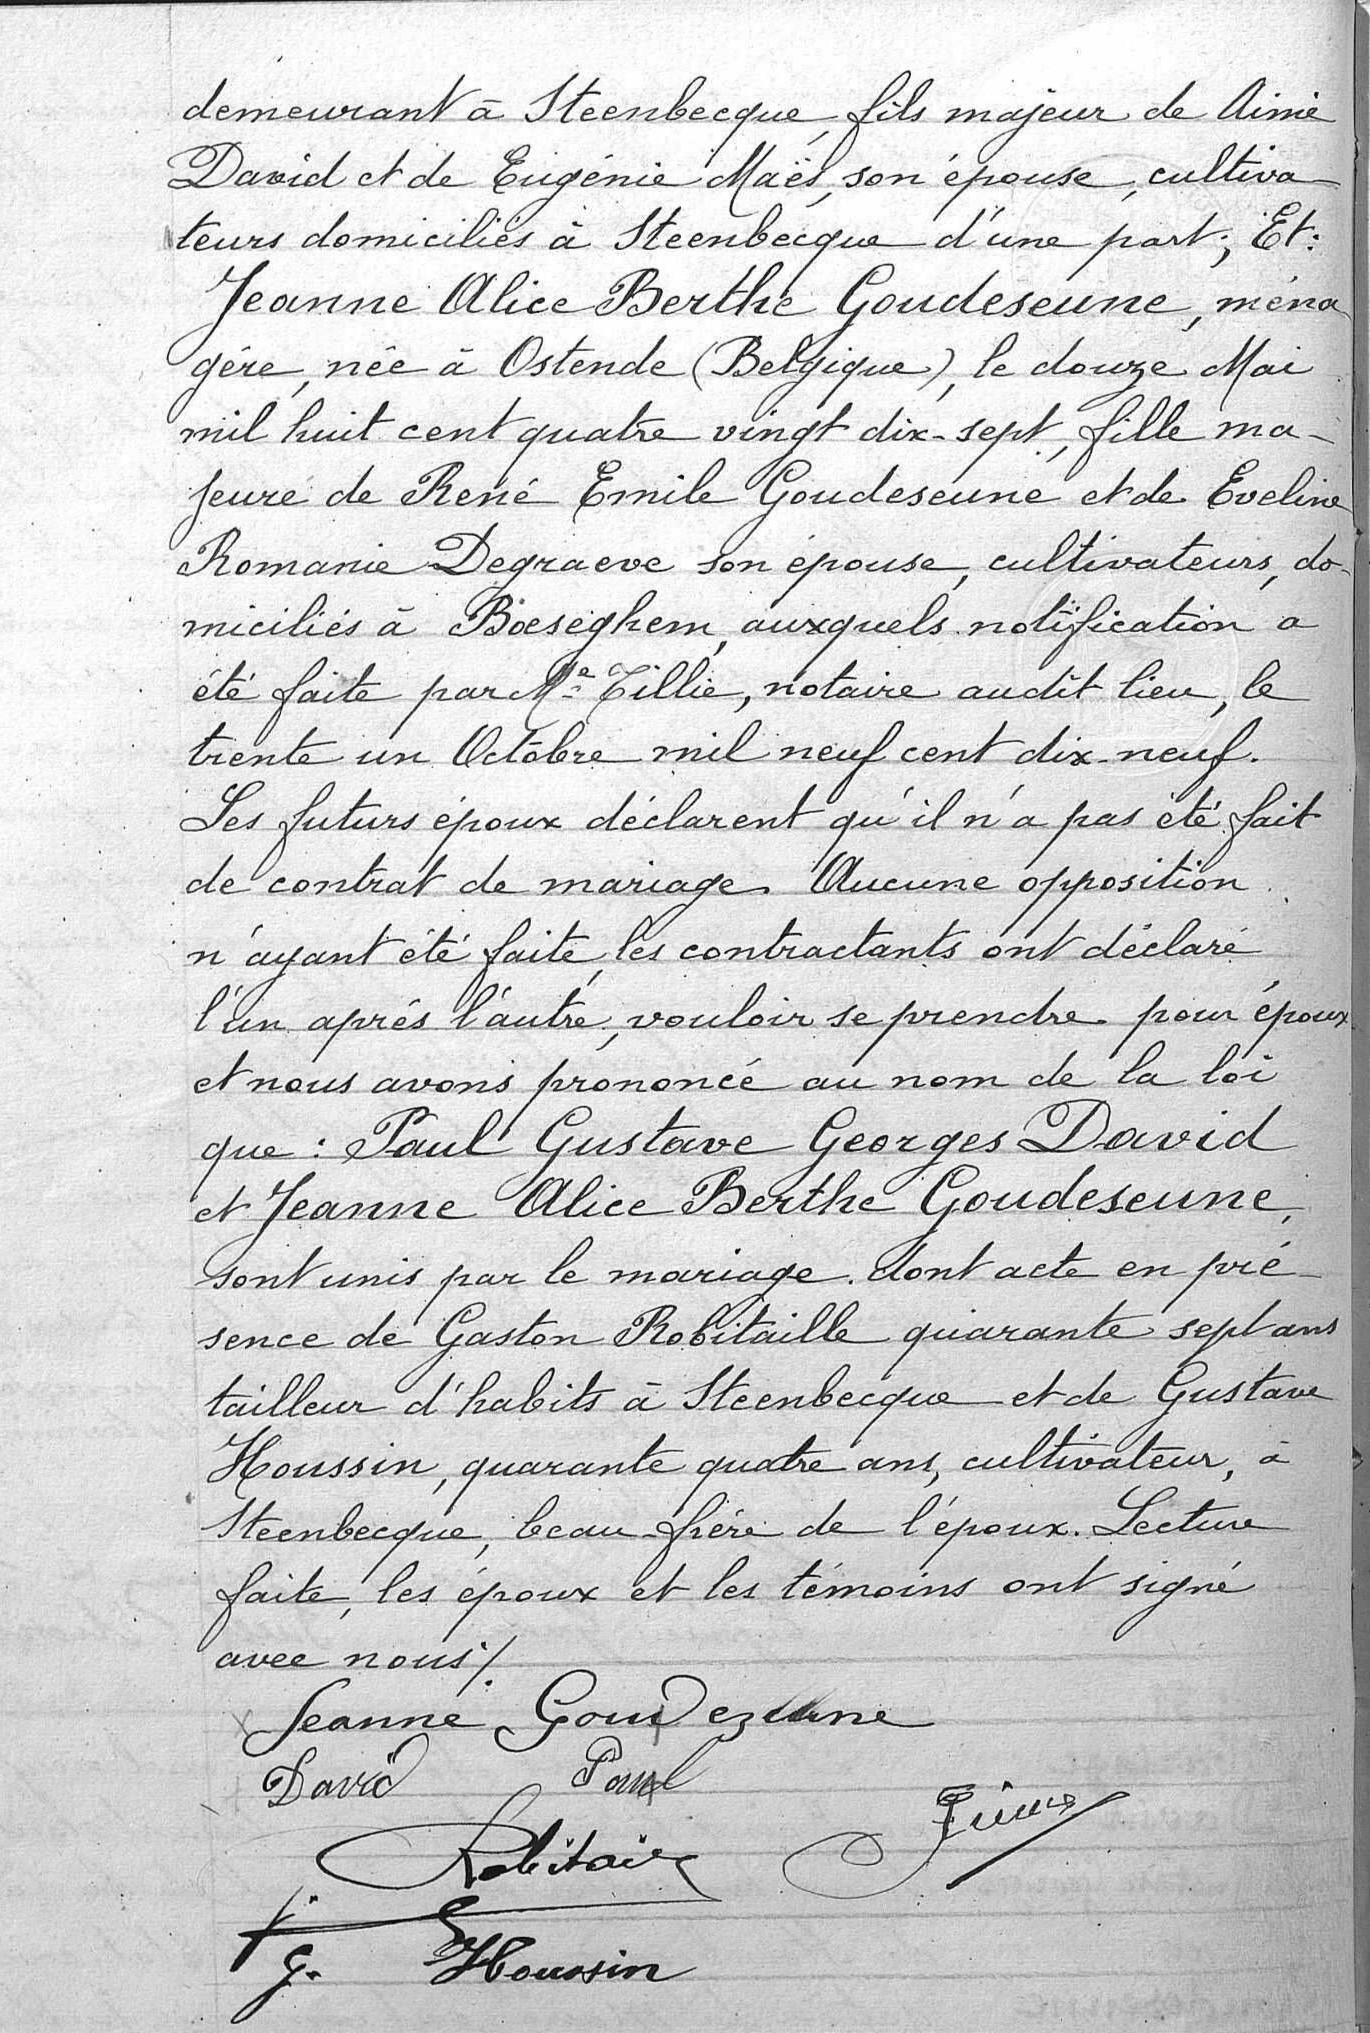 demeurant à Steenbecque, fils majeur de Aimé
David et de Eugénie Maës, son épouse, cultiva-
teurs domiciliés à Steenbecque d'une part; Et:
Jeanne Alice Berthe Goudeseune, ména
gère, née à Ostende (Belgique), le douze Mai
mil huit cent quatre vingt dix-sept, fille ma-
jeure de René Emile Goudeseune et de Eveline
Romanie Degraeve son épouse, cultivateurs, do-
miciliés à Boeseghem, auxquels notification a
été faite par Me Tillie, notaire audit lieu, le
trente un Octobre mil neuf cent dix-neuf.
Les futurs époux déclarent qu'il n'a pas été fait
de contrat de mariage. Aucune opposition
n'ayant été faite, les contractants ont déclaré
l'un après l'autre, vouloir se prendre pour époux
et nous avons prononcé au nom de la loi
que : Paul Gustave Georges David
et Jeanne Alice Berthe Goudeseune,
sont unis par le mariage. dont acte en pré-
sence de Gaston Robitaille quarante sept ans
tailleur d'habits à Steenbecque et de Gustave
Houssin, quarante quatre ans, cultivateur, à
Steenbecque, beau-frère de l'époux. Lecture
faite, les époux et les témoins ont signé
avec nous ./.
Jeanne Goudezeune
David Paul
Robitaille
G. Houssin